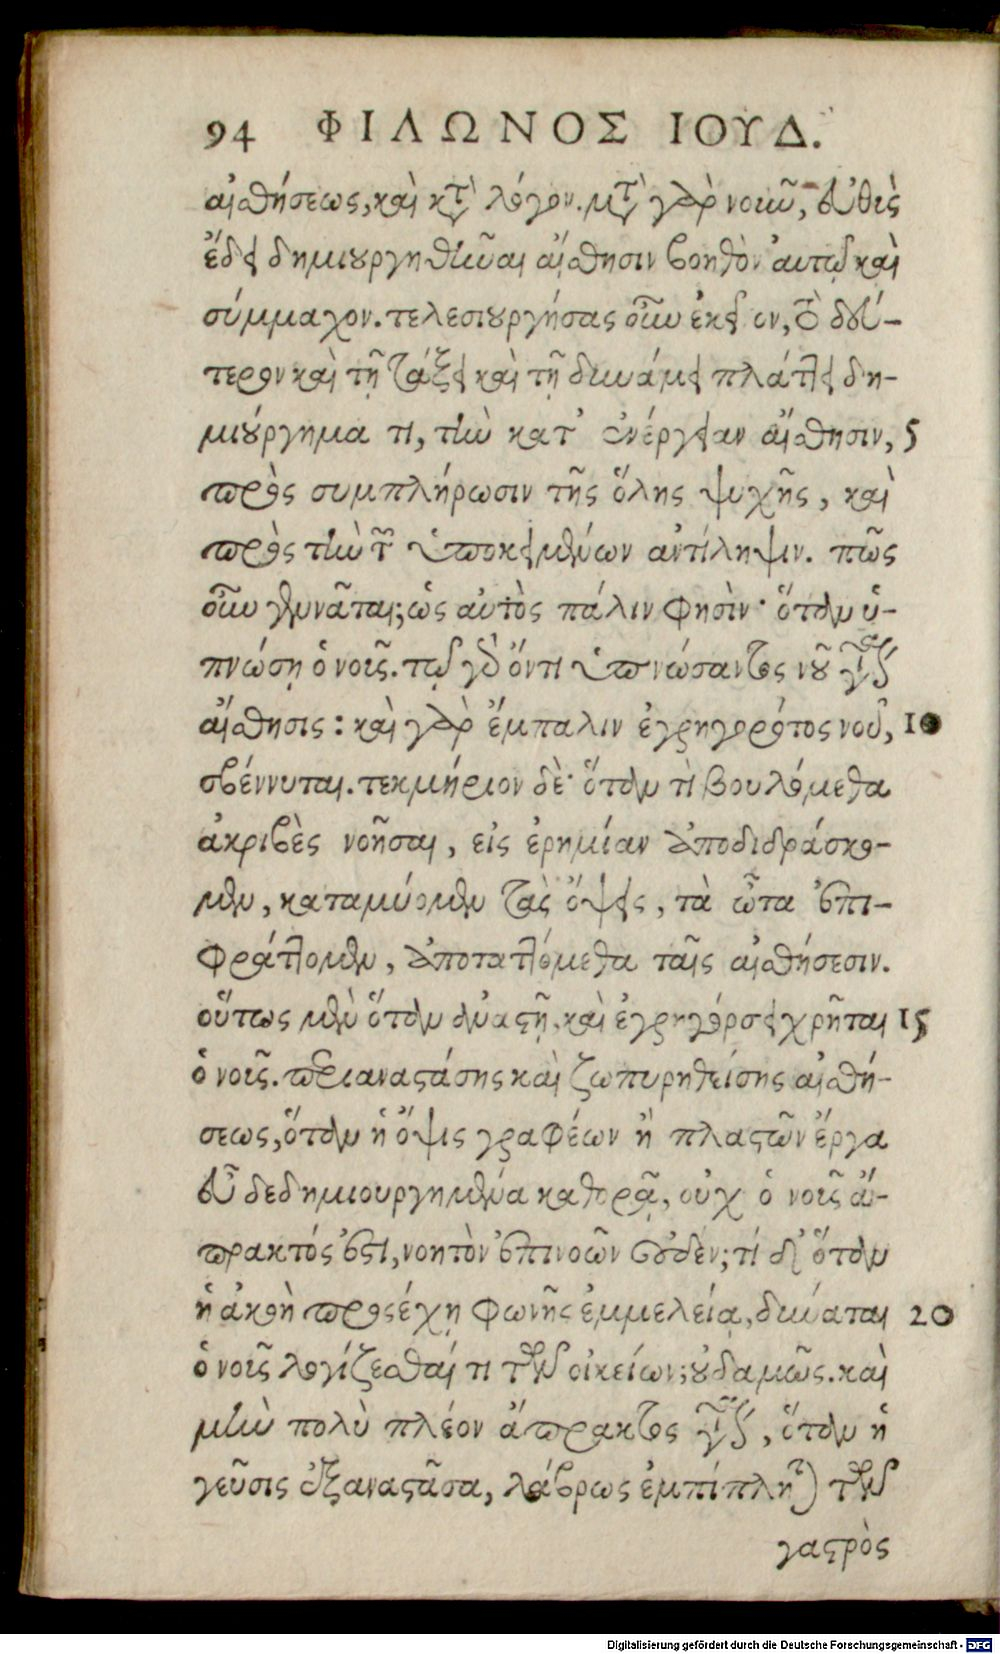 94 ΦΙΛΩΝΟΣ ΙΟΥΔ.
αἰσθήσεως, καὶ κτ̀ λόγον. μτ̀ γὰρ νοιῦ, εὐθὺς
ἔδει δημιουργηθῆναι αἴσθησιν βοηθὸν αὐτῷ καὶ
σύμμαχον. τελεσιουργήσας οὖν ἐκεῖνον, τὸ δεύ-
τερον καὶ τῇ τάξει καὶ τῇ δυνάμει πλάττει δη-
μιούργημα τι, τὴν κατ᾽ ἐνέργειαν αἴσθησιν, 5
πρὸς συμπλήρωσιν τῆς ὅλης ψυχῆς, καὶ
πρὸς τὴν τ῀ ὑποκειμένων ἀντίληψιν. πῶς
οὖν γεννᾶται; ὡς αὐτὸς πάλιν φησὶν· ὅταν ὑ-
πνώσῃ ὁ νοῦς. τῷ γδ̀ ὄντι ὑπνώσαντος νοῦ γίνεται
αἴσθησις: καὶ γὰρ ἔμπαλιν ἐγρηγορότος νοῦ, 10
σβέννυται. τεκμήριον δὲ· ὅταν τὶ βουλόμεθα
ἀκριβὲς νοῆσαι, εἰς ἐρημίαν ἀποδιδράσκο-
μεν, καταμύομεν τὰς ὄψεις, τὰ ὦτα ἐπι-
φράττομεν, ἀποταττόμεθα ταῖς αἰσθήσεσιν.
οὕτως μὲν ὅταν ἀναστῇ, καὶ ἐγρηγόρσει χρῆται 15
ὁ νοῦς. περιαναστάσης καὶ ζωπυρηθείσης αἰσθή-
σεως, ὅταν ἡ ὄψις γραφέων ἢ πλαστῶν ἔργα
εὖ δεδημιουργημένα καθορᾷ, οὐχ ὁ νοῦς ἄ-
πρακτός ἐστι, νοητὸν ἐπινοῶν οὐδὲν; τί δ᾽ ὅταν
ἡ ἀκοὴ προσέχῃ φωνῆς ἐμμελείᾳ, δύναται 20
ὁ νοῦς λογίζεσθαί τι τῶν οἰκείων; οὐδαμῶς. καὶ
μὴν πολὺ πλέον ἄπρακτος γίνεται, ὅταν ἡ
γεῦσις ἐξαναστᾶσα, λάβρως ἐμπίπληται τῶν
γαστρὸς
Digitalisierung gefördert durch die Deutsche Forschungsgemeinschaft - DFG